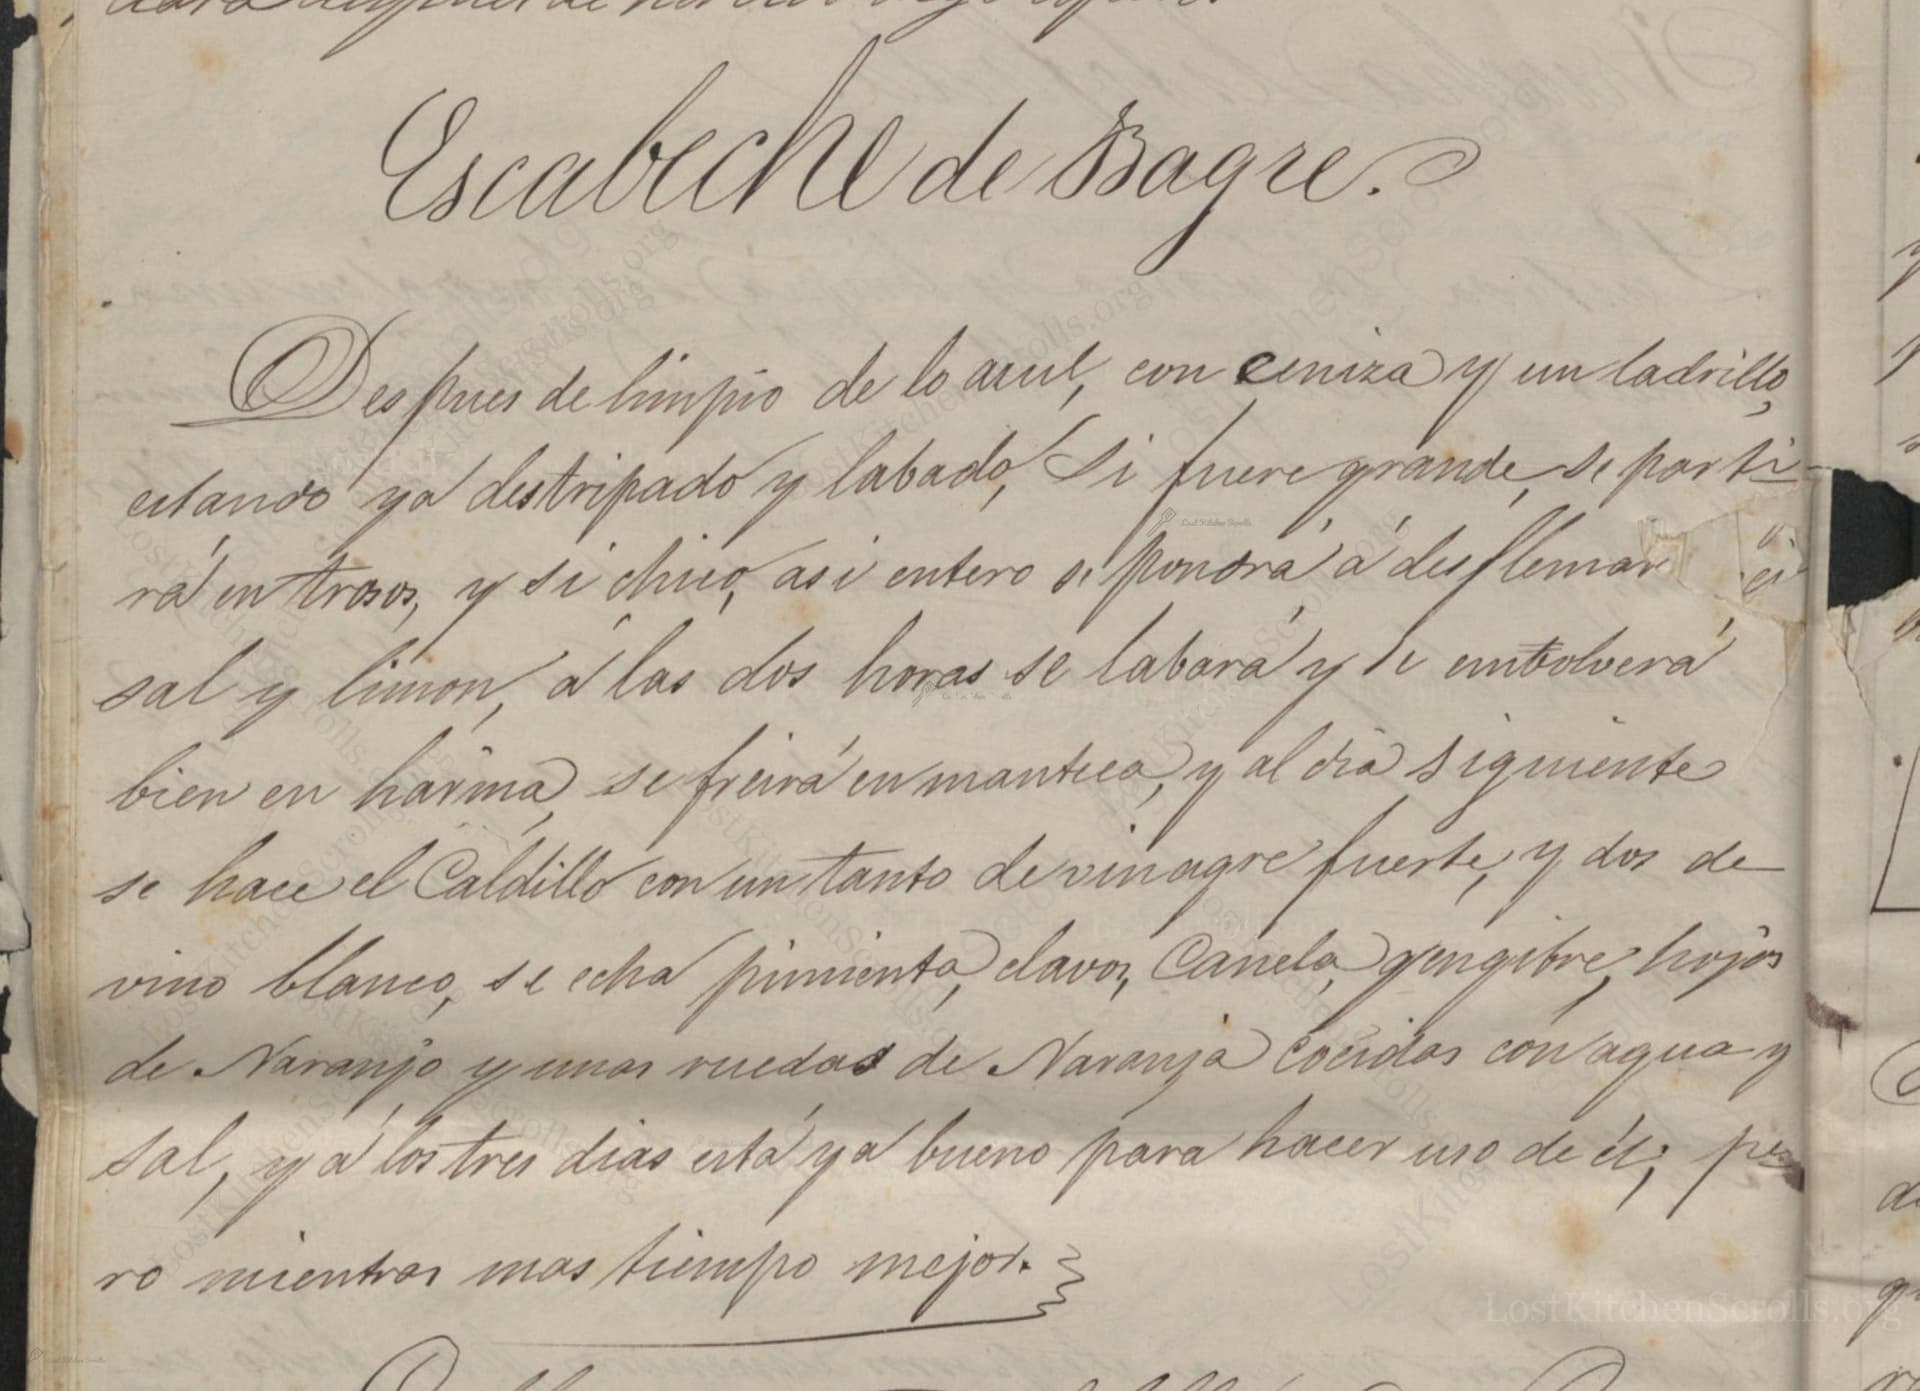 Escabeche de Bagre.
Despues de limpio de lo azul, con ceniza y un ladrillo,
estando ya destripado y labado, Si fuere grande, se parti-
rá en trosos, y si chico, asi entero se pondrá á desflemar
sal y limon, á las dos horas se labará y se embolverá
bien en harina, se freirá en manteca, y al dia siguiente
se hace el Caldillo con un tanto de vinagre fuerte, y dos de
vino blanco, se echa pimienta, clavos, Canela, gengibre, hojas
de Naranjo y unas ruedas de Naranja cocidas con agua y
sal, y á los tres dias está ya bueno para hacer uso de él; pe
ro mientras mas tiempo mejor.
LostKitchenScrolls.org